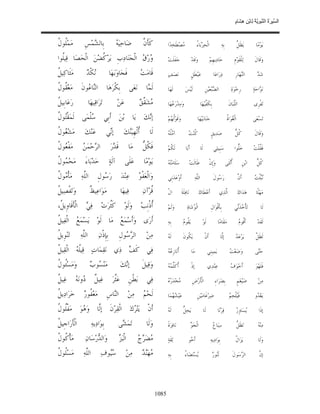 السّيرَةُ النَّبَوِيَّة لابْن هِشَام
يَوْمًا يَظَلُّ بِهِ الْحِرْبَاءُ مُصْطَخِدًا كَأَنَّ ضَاحِيَهُ بِالشَّمْسِ مَمْلُولُ
وَقَالَ لِلْقَوْمِ حَادِيهِمْ وَقَدْ جَعَلَتْ وُرْقُ الْجَنَادِبِ يَرْكُضْنَ الْحَصَا قِيلُوا
شَدَّ النَّهَارِ ذِرَاعَا عَيْطَلٍ نَصَفٍ قَامَتْ فَجَاوَبَهَا نُكْدٌ مَثَاكِيلُ
نَوَّاحَةٌ رِخْوَةُ الضَّبْعَيْنِ لَيْسَ لَهَا لَمَّا نَعَى بِكْرَهَا النَّاعُونَ مَعْقُولُ
تَفْرِي اللَّبَانَ بِكَفَّيْهَا وَمِدْرَعُهَا مُشَقَّقٌ عَنْ تَرَاقِيهَا رَعَابِيلُ
تَسْعَى الْغُوَاةُ جَنَابَيْهَا وَقَوْلُهُمْ إنَّكَ يَا بْنَ أَبِي سُلْمَى لَمَقْتُولُ
وَقَالَ كُلُّ صَدِيقٍ كُنْتُ آمُلُهُ لَا أُلْهِيَنَّكَ إنِّي عَنْكَ مَشْغُولُ
فَقُلْتُ خَلُّوا سَبِيلِي لَا أَبَا لَكُمْ فَكُلُّ مَا قَدَّرَ الرَّحْمَنُ مَفْعُولُ
كُلُّ ابْنِ أُنْثَى وَإِنْ طَالَتْ سَلَامَتُهُ يَوْمًا عَلَى آلَةٍ حَدْبَاءَ مَحْمُولُ
نُبِّئْتُ أَنَّ رَسُولَ اللَّهِ أَوْعَدَنِي وَالْعَفْوُ عِنْدَ رَسُولِ اللَّهِ مَأْمُولُ
مَهْلًا هَدَاكَ الَّذِي أَعْطَاكَ نَافِلَةَ الْ قُرْآنِ فِيهَا مَوَاعِيظٌ وَتَفْصِيلُ
لَا تَأْخُذَنِّي بِأَقْوَالِ الْوُشَاةِ وَلَمْ أُذْنِبْ وَلَوْ كَثُرَتْ فِيَّ الْأَقَاوِيلُ
لَقَدْ أَقُومُ مَقَامًا لَوْ يَقُومُ بِهِ أَرَى وَأَسْمَعُ مَا لَوْ يَسْمَعُ الْفِيلُ
لَظَلَّ يَرْعَدُ إلَّا أَنْ يَكُونَ لَهُ مِنْ الرَّسُولِ بِإِذْنِ اللَّهِ تَنْوِيلُ
حَتَّى وَضَعْتُ يَمِينِي مَا أُنَازِعُهُ فِي كَفِّ ذِي نَقِمَاتٍ قِيلُهُ الْقِيلُ
فَلَهْوَ أَخْوَفُ عِنْدِي إذْ أُكَلِّمُهُ وَقِيلَ إنَّكَ مَنْسُوبٌ وَمَسْئُولُ
مِنْ ضَيْغَمٍ بِضَرَاءِ الْأَرْضِ مُخْدَرُهُ فِي بَطْنِ عَثَّرَ غِيلٌ دُونَهُ غِيلُ
يَغْدُو فَيُلْحِمُ ضِرْغَامَيْنِ عَيْشُهُمَا لَحْمٌ مِنْ النَّاسِ مَعْفُورٌ خَرَادِيلُ
إذَا يُسَاوِرُ قِرْنًا لَا يَحِلُّ لَهُ أَنْ يَتْرُكَ الْقِرْنَ إلَّا وَهُوَ مَفْلُولُ
مِنْهُ تَظَلُّ سِبَاعُ الْجَوِّ نَافِرَةً وَلَا تَمَشَّى بِوَادِيهِ الْأَرَاجِيلُ
وَلَا يَزَالُ بِوَادِيهِ أَخُو ثِقَةٍ مُضَرَّجُ الْبَزِّ وَالدُّرْسَانِ مَأْكُولُ
إنَّ الرَّسُولَ لَنُورٌ يُسْتَضَاءُ بِهِ مُهَنَّدٌ مِنْ سُيُوفِ اللَّهِ مَسْلُولُ
1085